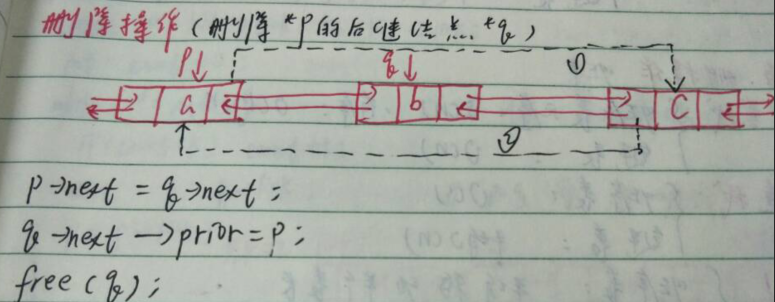 删除操作(删除*p的后继结点*q)
p q ①
a b c
②
p→next = q→next;
q→next→prior=p;
free(q);